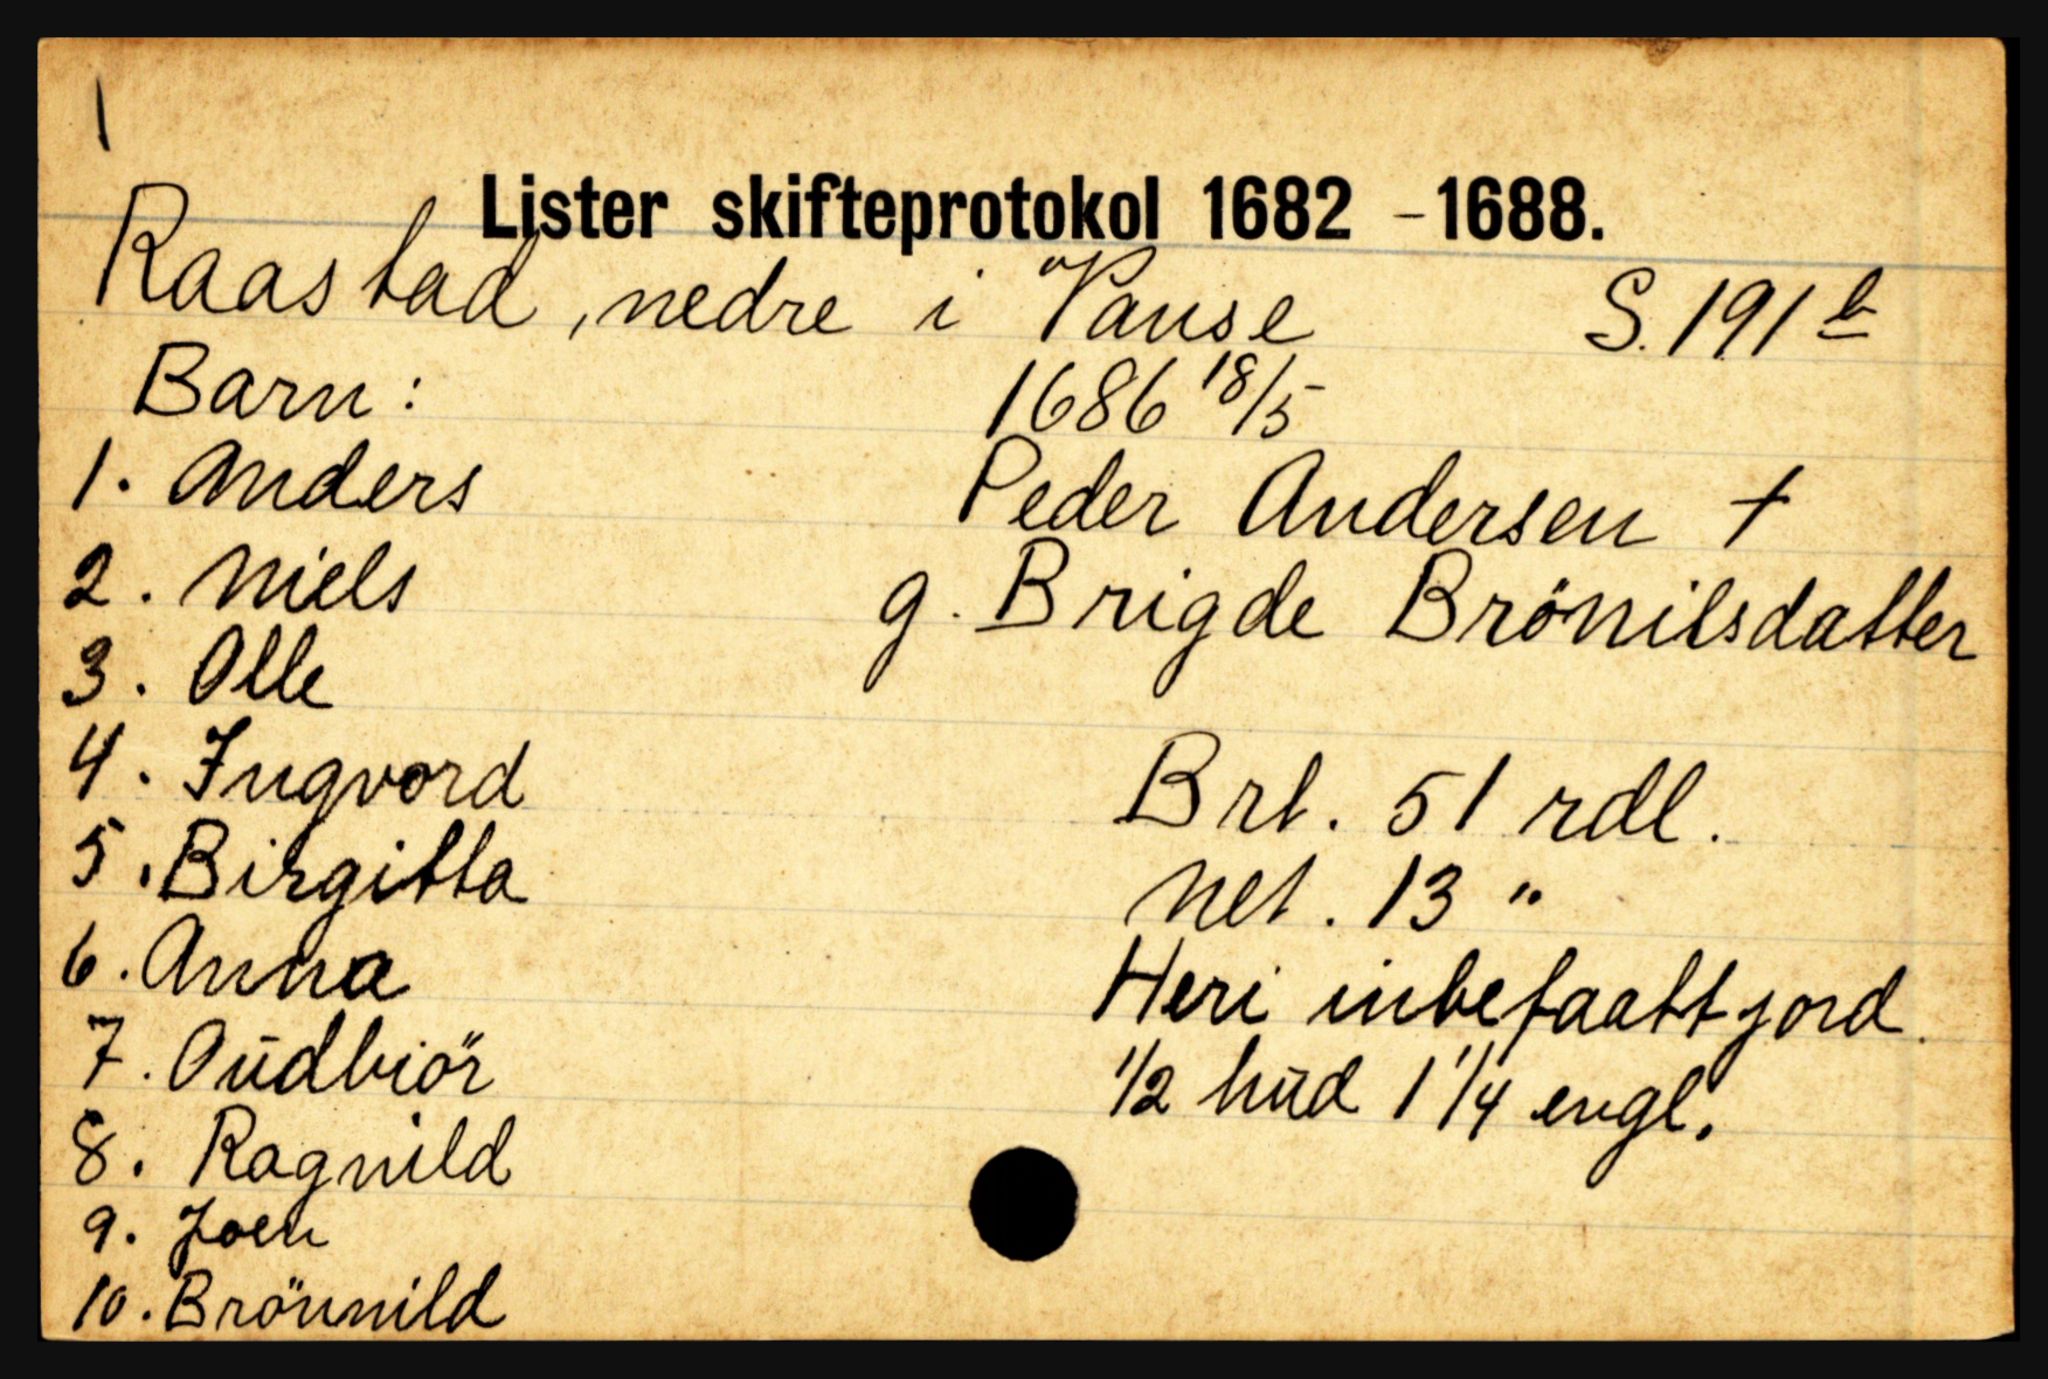 Lister skifteprotokol 1682 - 1688.
Raastad, nedre i Vanse S. 191 b
Barn:
1. Anders
2. Niels
3. Olle
4. Ingvord
5. Birgitta
6. Anna
7. Oŭdbiör
8. Ragnild
9. Joen
10. Brönnild
1686 18/5
Peder Andersen †
g. Brigde Brönilsdatter
Brt. 51 rdl.
Net. 13 "
Heri inbefaatt jord.
1/2 hŭd 1 1/4 engl.